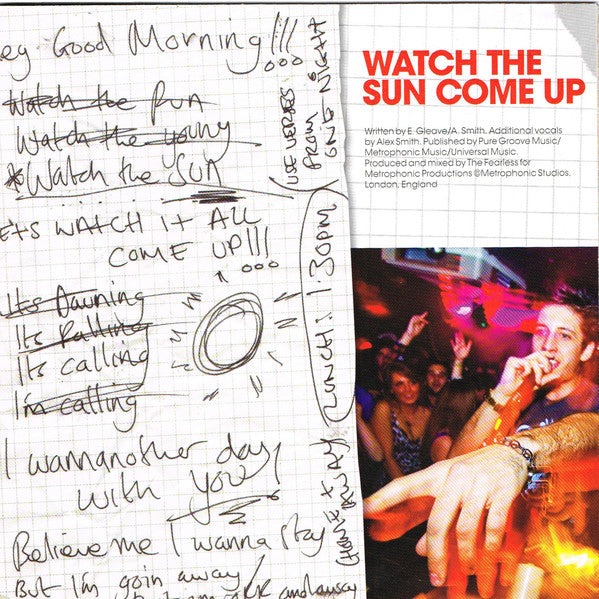 ey Good Morning!!!
Watch the Run
Watch the young
*Watch the Sun
ETS WATCH IT ALL
COME UP!!!
Its Dawning
Its Falling
Its calling
I'm calling
I wannanother day
with you!
Believe me I wanna stay
But I'm goin away
and away
(USE VERSES
FROM
ONE NIGHT
LUNCH: 1:30PM
AWAY
WATCH THE
SUN COME UP
Written by E. Gleave/A. Smith. Additional vocals
by Alex Smith. Published by Pure Groove Music/
Metrophonic Music/Universal Music.
Produced and mixed by The Fearless for
Metrophonic Productions @Metrophonic Studios.
London, England